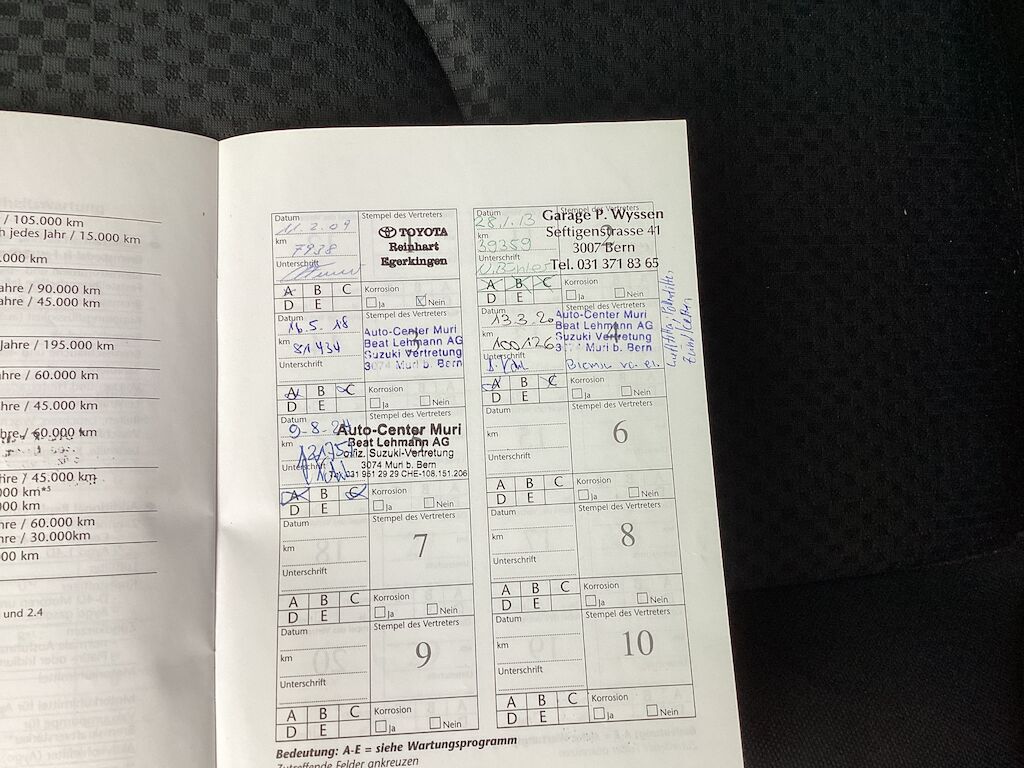 / 105.000 km
h jedes Jahr / 15.000 km
.000 km
ahre / 90.000 km
ahre / 45.000 km
Jahre / 195.000 km
hre / 60.000 km
hre / 45.000 km
hre / 60.000 km
hre / 45.000 km
000 km*⁵
000 km
hre / 60.000 km
hre / 30.000km
000 km
und 2.4
Datum
11.2.09
km
7938
Unterschrift
Stempel des Vertreters
1
TOYOTA
Reinhart
Egerkingen
A B C
D E
Korrosion
Ja Nein
Datum
28.1.13
km
39359
Unterschrift
Stempel des Vertreters
2
Garage P. Wyssen
Seftigenstrasse 41
3007 Bern
Tel. 031 371 83 65
A B C
D E
Korrosion
Ja Nein
Datum
16.5.18
km
81434
Unterschrift
Stempel des Vertreters
3
Auto-Center Muri
Beat Lehmann AG
Suzuki Vertretung
3074 Muri b. Bern
A B C
D E
Korrosion
Ja Nein
Datum
13.3.20
km
100126
Unterschrift
Stempel des Vertreters
4
Auto-Center Muri
Beat Lehmann AG
Suzuki Vertretung
Muri b. Bern
A B C
D E
Korrosion
Ja Nein
Datum
9-8-21
km
121757
Unterschrift
Stempel des Vertreters
Auto-Center Muri
Beat Lehmann AG
offiz. Suzuki-Vertretung
3074 Muri b. Bern
Tel. 031 951 29 29 CHE-108.151.206
A B C
D E
Korrosion
Ja Nein
Datum
km
Unterschrift
Stempel des Vertreters
6
A B C
D E
Korrosion
Ja Nein
Datum
km
Unterschrift
Stempel des Vertreters
7
A B C
D E
Korrosion
Ja Nein
Datum
km
Unterschrift
Stempel des Vertreters
8
A B C
D E
Korrosion
Ja Nein
Datum
km
Unterschrift
Stempel des Vertreters
9
A B C
D E
Korrosion
Ja Nein
Datum
km
Unterschrift
Stempel des Vertreters
10
A B C
D E
Korrosion
Ja Nein
Bedeutung: A-E = siehe Wartungsprogramm
Zutreffende Felder ankreuzen